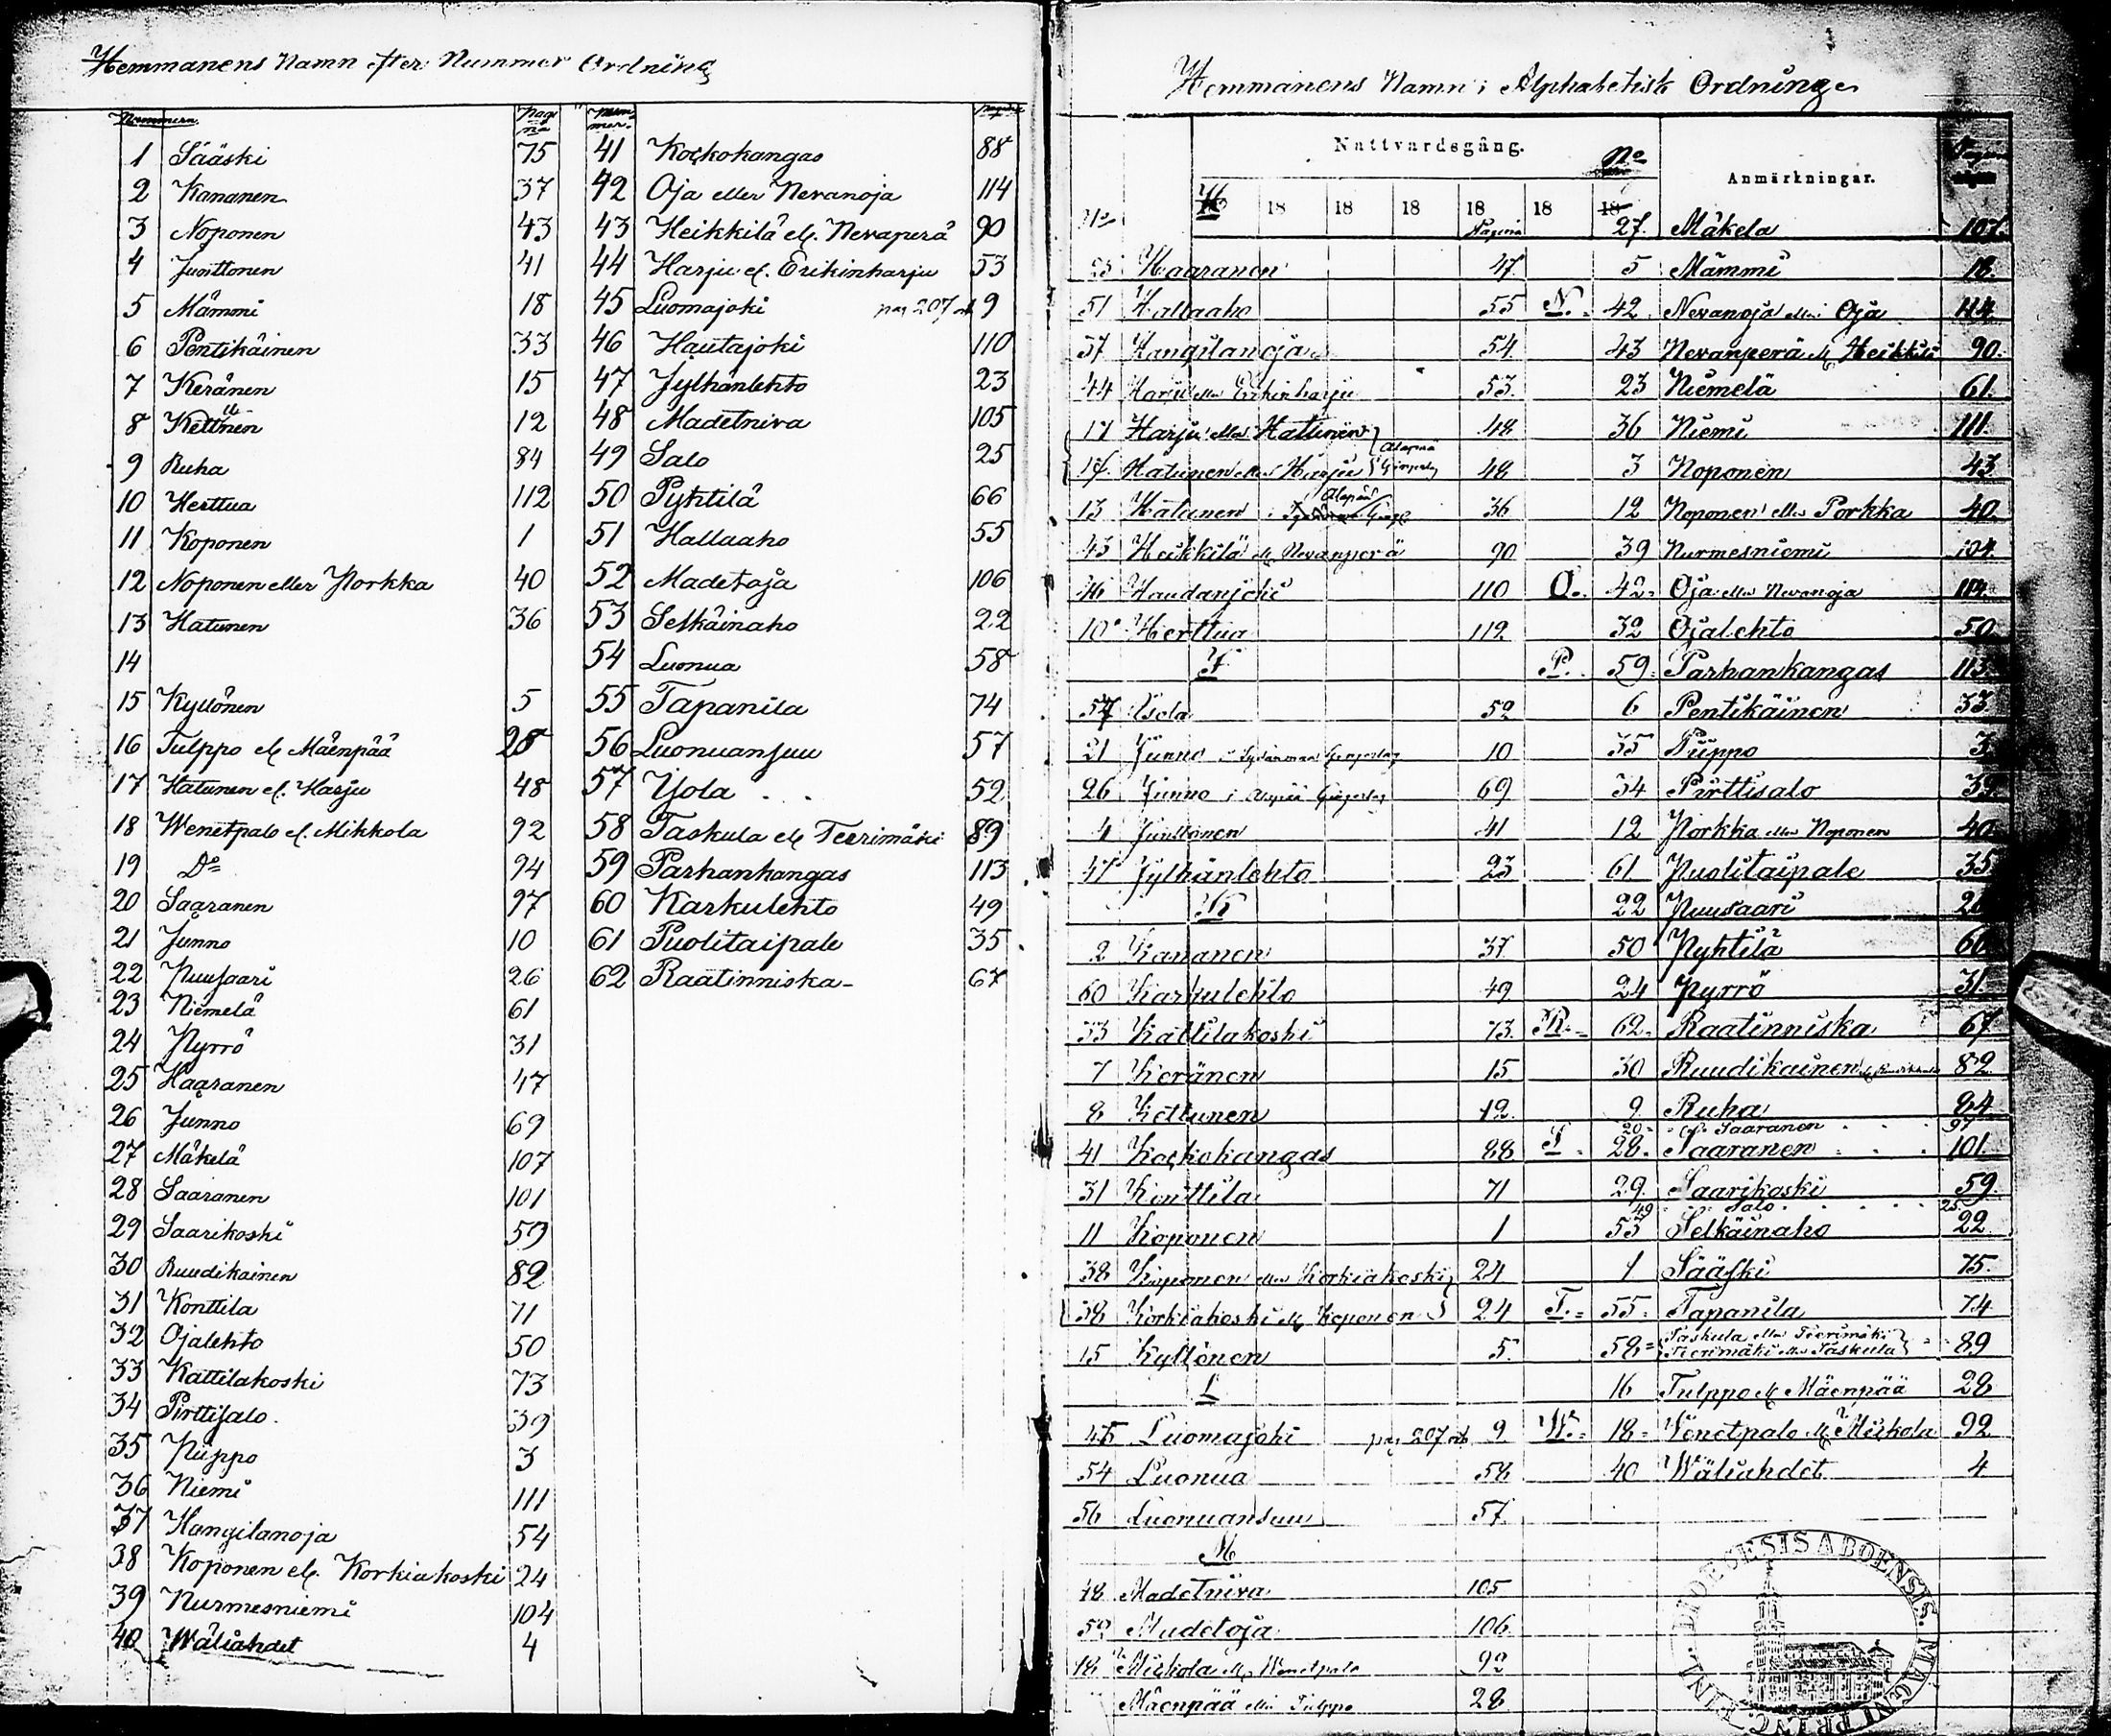 Hemmanens Namn efter Nummer Ordning
Nummern Pagina Nummer. Pagina
1 Sääski 75
2 Kananen 37
3 Noponen 43
4 Junttonen 41
5 Mämmi 18
6 Pentikäinen 33
7 Keränen 15
8 Kettunen 12
9 Ruha 84
10 Herttua 112
11 Koponen 1
12 Noponen eller Porkka 40
13 Hatunen 36
14
15 Kyllönen 5
16 Tulppo ell. Mäenpää 28
17 Hatunen el. Harju 48
18 Wenetpalo el. Mikkola 92
19 Do 94
20 Saaranen 97
21 Junno 10
22 Puusaari 26
23 Niemelä 61
24 Pyrrö 31
25 Haaranen 47
26 Junno 69
27 Mäkelä 107
28 Saaranen 101
29 Saarikoski 59
30 Ruudikainen 82
31 Konttila 71
32 Ojalehto 50
33 Kattilakoski 73
34 Pirttisalo. 39
35 Piippo 3
36 Niemi 111
37 Hangilanoja 54
38 Koponen ell. Korkiakoski 24
39 Nurmesniemi 104
40 Wäliahdet 4
41 Kockokangas 88
42 Oja eller Nevanoja 114
43 Heikkilä ell. Nevaperä 90
44 Harju el. Erikinharju 53
45 Luomajoki pag 207 och 9
46 Hautajoki 110
47 Jylhänlehto 23
48 Madetniva 105
49 Salo 25
50 Pyhtilä 66
51 Hallaaho 55
52 Madetoja 106
53 Selkäinaho 22
54 Luonua 58
55 Tapanila 74
56 Luonuansuu 57
57 Ijola 52
58 Taskula ell Teerimäki 89
59 Parhankangas 113
60 Karkulehto 49
61 Puolitaipale 35
62 Raatinniska 67
Hemmanens Namn i Alphabetisk Ordning
Nattvardsgång. No Anmärkningar. Pagina
No H 18 18 18 18 18 18
Pagina
25 Haaranen 47
51 Hallaaho 55
37 Hangilanoja 54
44 Harju eller Erikinharju 53
17 Harju eller Hatunen 48
17 Hatunen eller Harju 48
13 Hatunen i Alapää 36
43 Heikkilä ell Nevanperä 90
46 Haudanjoki 110
10 Herttua 112
I
57 Ijola 52
21 Junno i Sydänmaa Gingerlag 10
26 Junno i Alapää Gingerlag 69
4 Junttonen 41
47 Jylhänlehto 23
K
2 Kananen 37
60 Karkulehto 49
33 Kattilakoski 73
7 Keränen 15
8 Kettunen 12
41 Kockokangas 88
31 Konttila 71
11 Koponen 1
38 Koponen eller Korkiakoski 24
38 Korkiakoski ell Koponen 24
15 Kyllönen 5
L
45 Luomajoki pag 207 och 9
54 Luonua 58
56 Luonuansuu 57
M
48 Madetniva 105
52 Madetoja 106
18 Mickola ell Wenetpalo 92
Mäenpää eller Tulppo 28
27. Mäkelä 107
5 Mämmi 18
N. 42 Nevanoja eller Oja 114
43 Nevanperä ell Heikkilä 90
23 Niemelä 61
36 Niemi 111
3 Noponen 43
12 Noponen eller Porkka 40
39 Nurmesniemi 104
O. 42 Oja eller Nevanoja 114
32 Ojalehto 50
P. 59 Parhankangas 113
6 Pentikäinen 33
35 Piippo 3
34 Pirttisalo 39
12 Porkka eller Noponen 40
61 Puolitaipale 35
22 Puusaari 26
50 Pyhtilä 66
24 Pyrrö 31
R. 62 Raatinniska 67
30 Ruudikainen 82
9 Ruha 84
20 Saaranen 97
S. 28 Saaranen 101
29 Saarikoski 59
49 Salo 25
53 Selkäinaho 22
1 Sääski 75
T. 55 Tapanila 74
58 Taskula eller Teerimäki 89
Teerimäki eller Taskula
16 Tulppo ell Mäenpää 28
W. 18 Wenetpalo ell Mickola 92
40 Wäliahdet 4
DIOECESIS ABOENSIS. MAGNI PRINC. FINL.